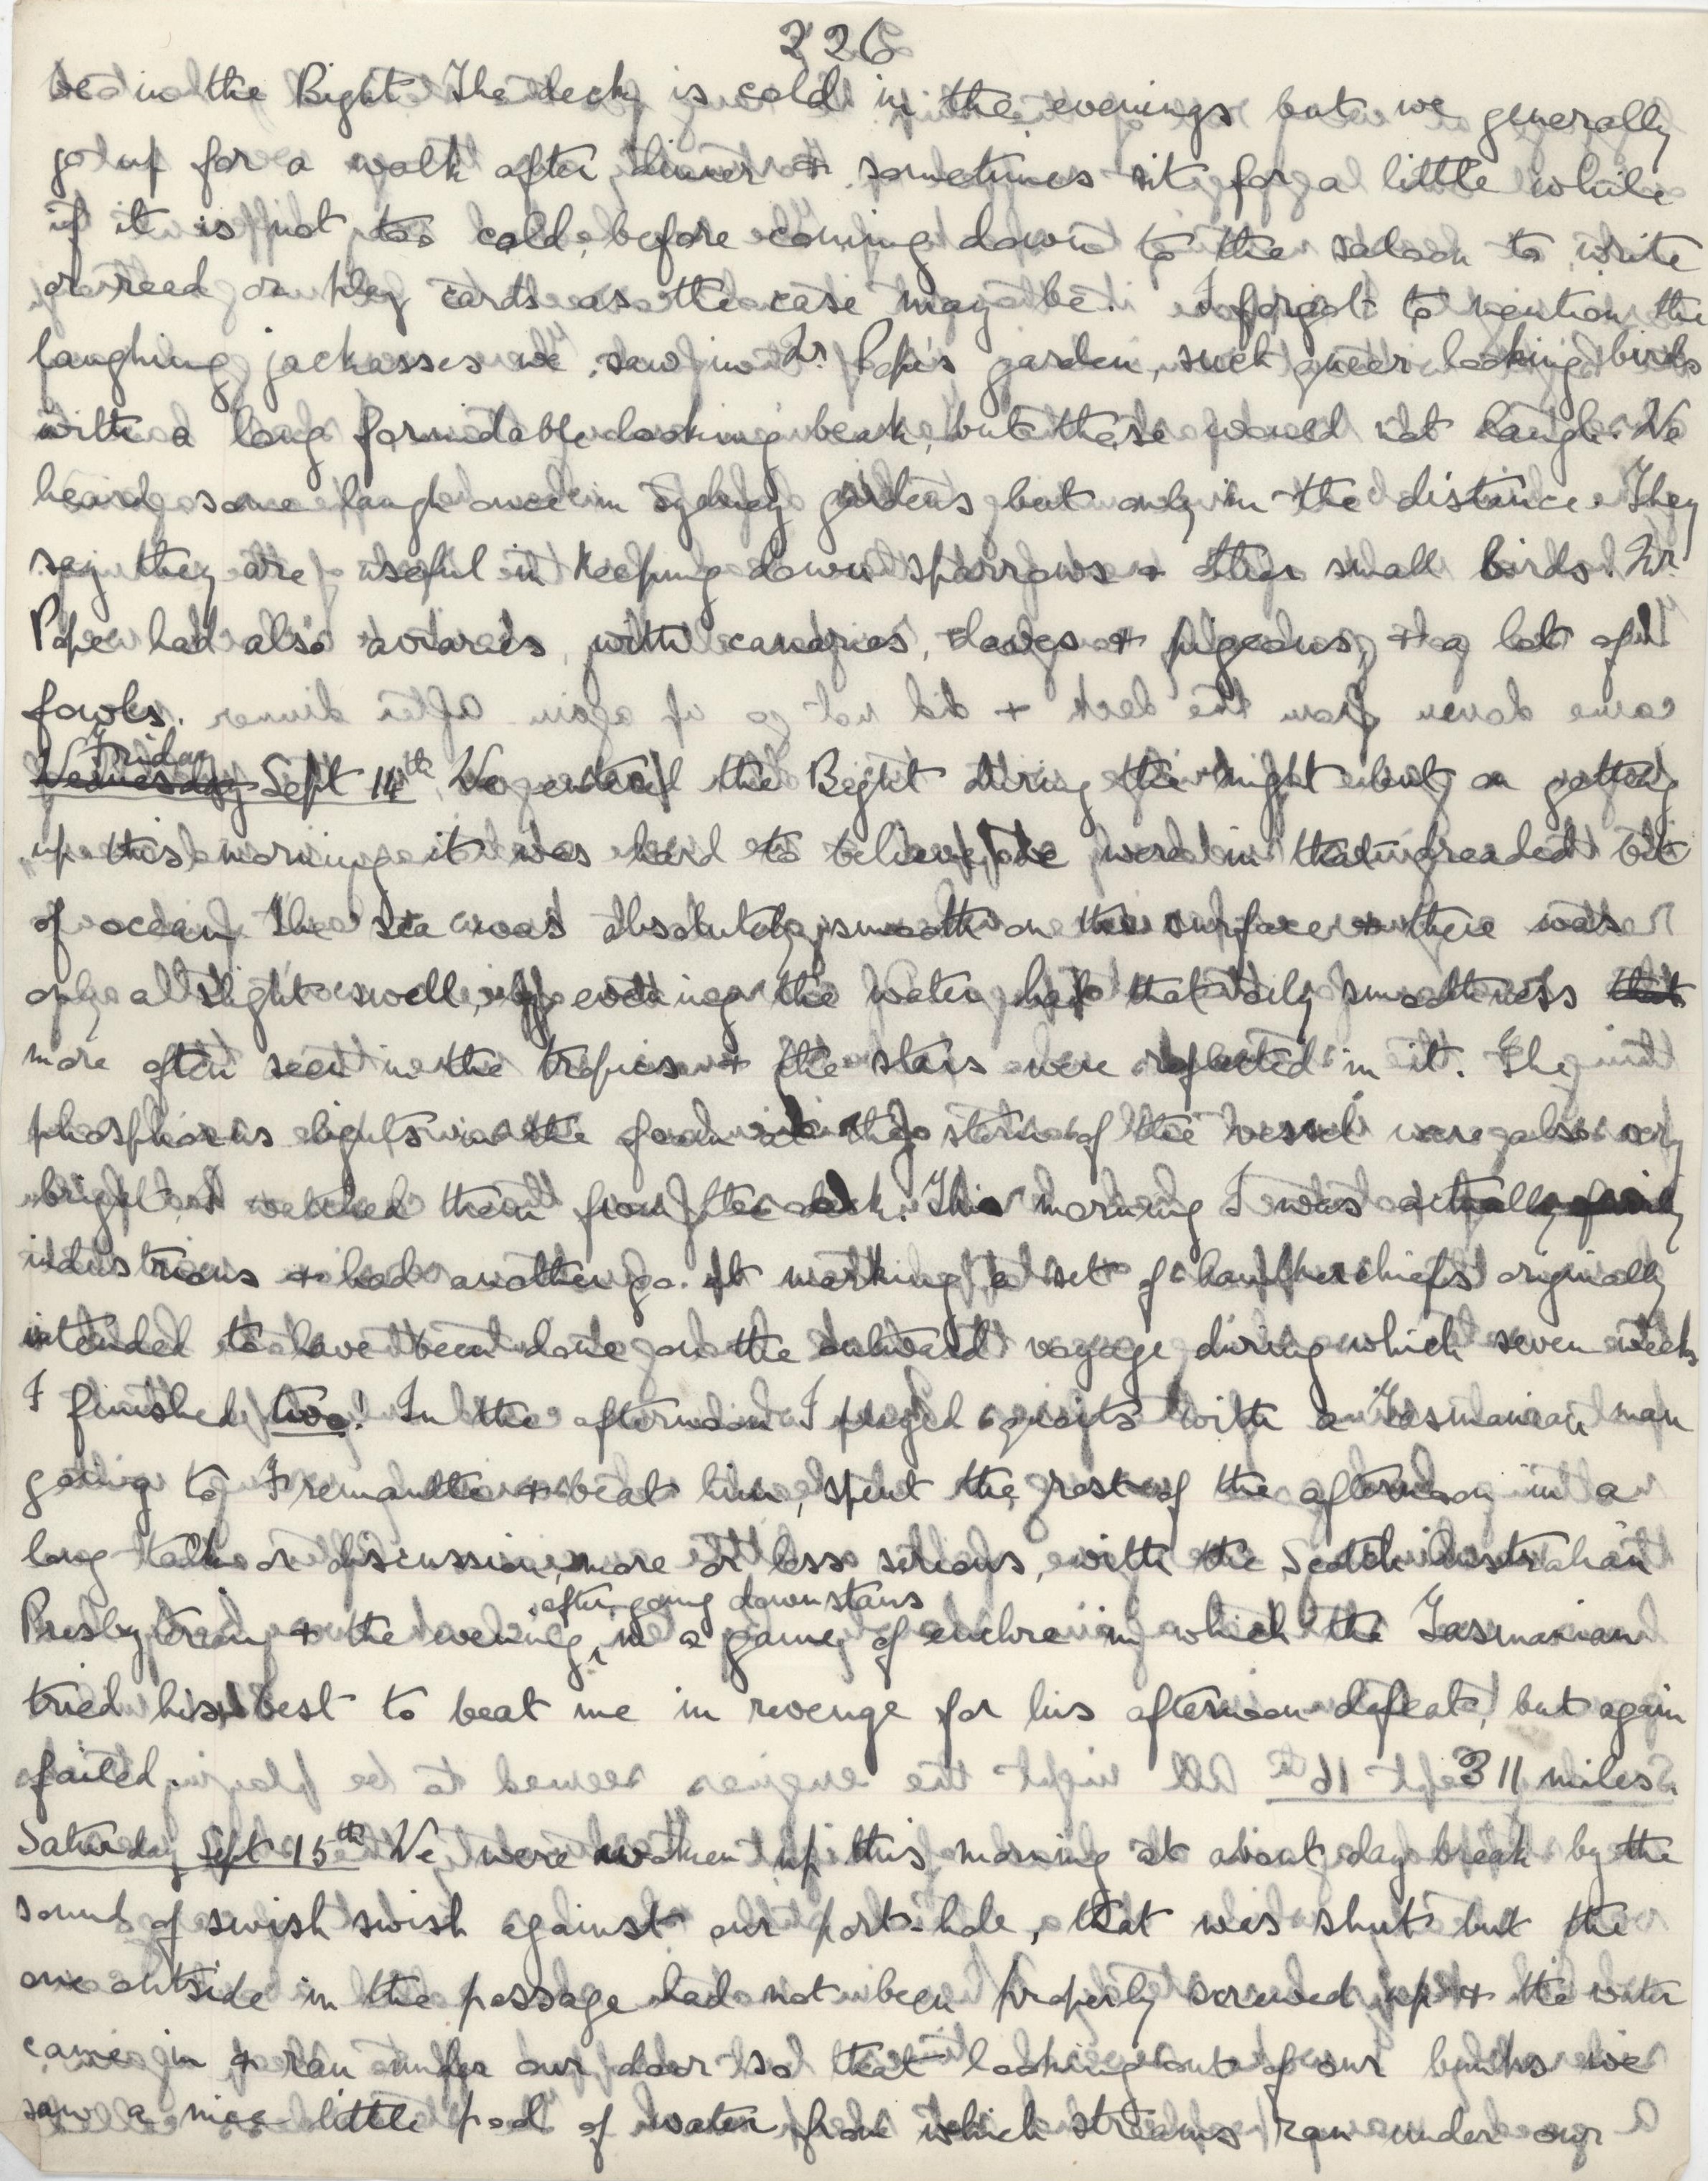 226
bed in the Bight. The deck is cold in the evenings but we generally
go up for a walk after dinner & sometimes sit for a little while
if it is not too cold, before coming down to the saloon to write
or read or play cards as the case may be. I forgot to mention the
laughing jackasses we saw in Dr. Pope's garden, such queer looking birds
with a long formidable looking beak, but these would not laugh. We
heard some laugh once in Sydney gardens but only in the distance. They
say they are useful in keeping down sparrows & other small birds. Dr.
Pope had also aviaries with canaries, doves & pigeons, & a lot of
fowls.
Friday
Wednesday Sept 14th. We entered the Bight during the night but on getting
up this morning it was hard to believe we were in that dreaded bit
of ocean. The sea was absolutely smooth on the surface & there was
only a slight swell, of evening the water had that oily smoothness that
more often seen in the tropics & the stars were reflected in it. The
phosphorus lights in the foam at the stern of the vessel were also very
bright, I watched them from the deck. This morning I was actually fairly
industrious & had another go at marking a set of handkerchiefs originally
intended to have been done on the outward voyage during which seven weeks
I finished two! In the afternoon I played quoits with a Tasmanian man
going to Fremantle & beat him, spent the rest of the afternoon in a
long talk or discussion, more or less serious, with the Scotch Australian
after going downstairs
Presbyterian & the evening, in a game of euchre in which the Tasmanian
tried his best to beat me in revenge for his afternoon defeat, but again
failed. 311 miles.
Saturday Sept 15th We were woken up this morning at about day break by the
sound of swish swish against our port-hole, that was shut but the
one outside in the passage had not been properly screwed up & the water
came in & ran under our door so that looking out of our bunks we
saw a nice little pool of water from which streams ran under our